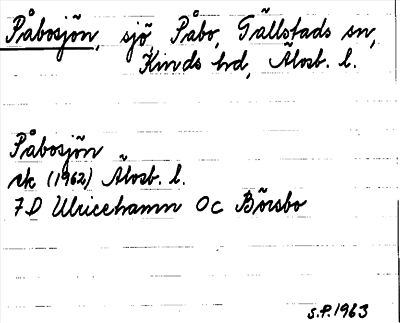 Påbosjön, sjö, Påbo, Tällstads sn,
Kinds hd, Älvsb. l.
Påbosjön
rk (1962) Älvsb. l.
7D Ulricehamn 0c Börsbo
S.P. 1963